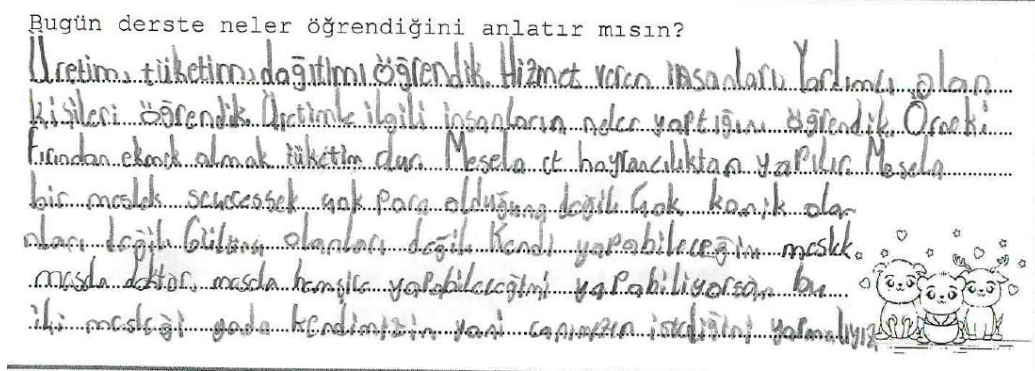 Bugün derste neler öğrendiğini anlatır mısın?
Üretim, tüketim, dağıtımı öğrendik. Hizmet veren insanları Yardımcı olan
kişileri öğrendik. Üretimle ilgili insanların neler yaptığını öğrendik. Örneki
fırından ekmek almak tüketim dur. Mesela et hayvancılıktan yapılır. Mesela
bir meslek seçecessek çok para olduğuna değil Çok komik olan
olanı değil Gülünç olanları değil. Kendi yapabileceğin meslek.
masela doktor, masela hemşire yapabileceğini yapabiliyorsan bu
iki mesleği yada kendimizin yani canımızın istediğini yapmalıyız